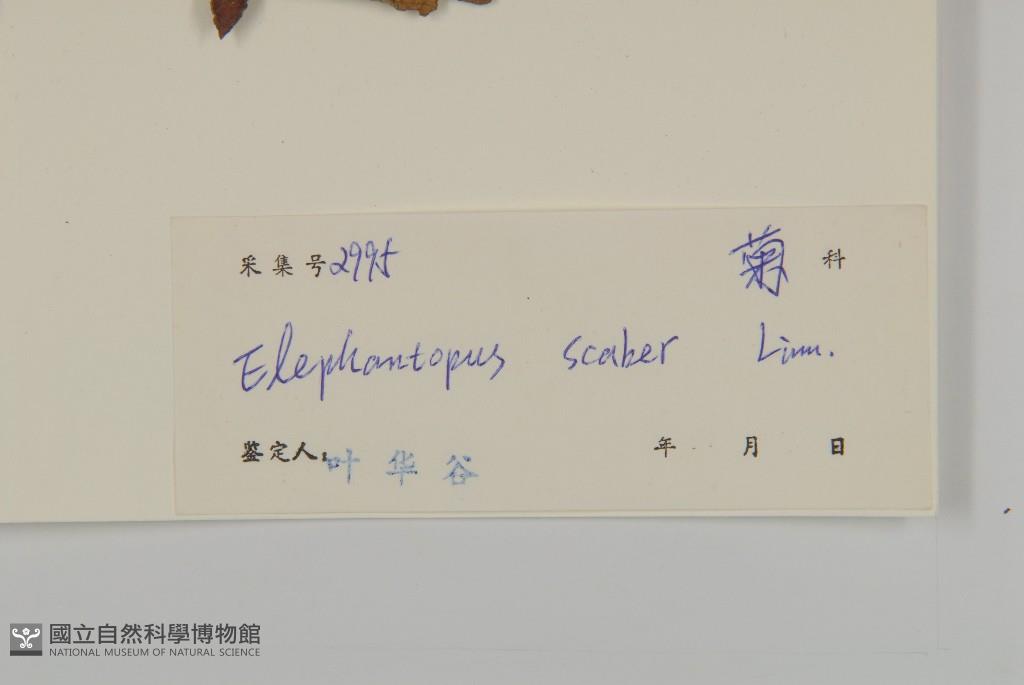 采集号 2995 菊 科
Elephantopus scaber Linn.
鉴定人: 叶华谷 年 月 日
國立自然科學博物館
NATIONAL MUSEUM OF NATURAL SCIENCE